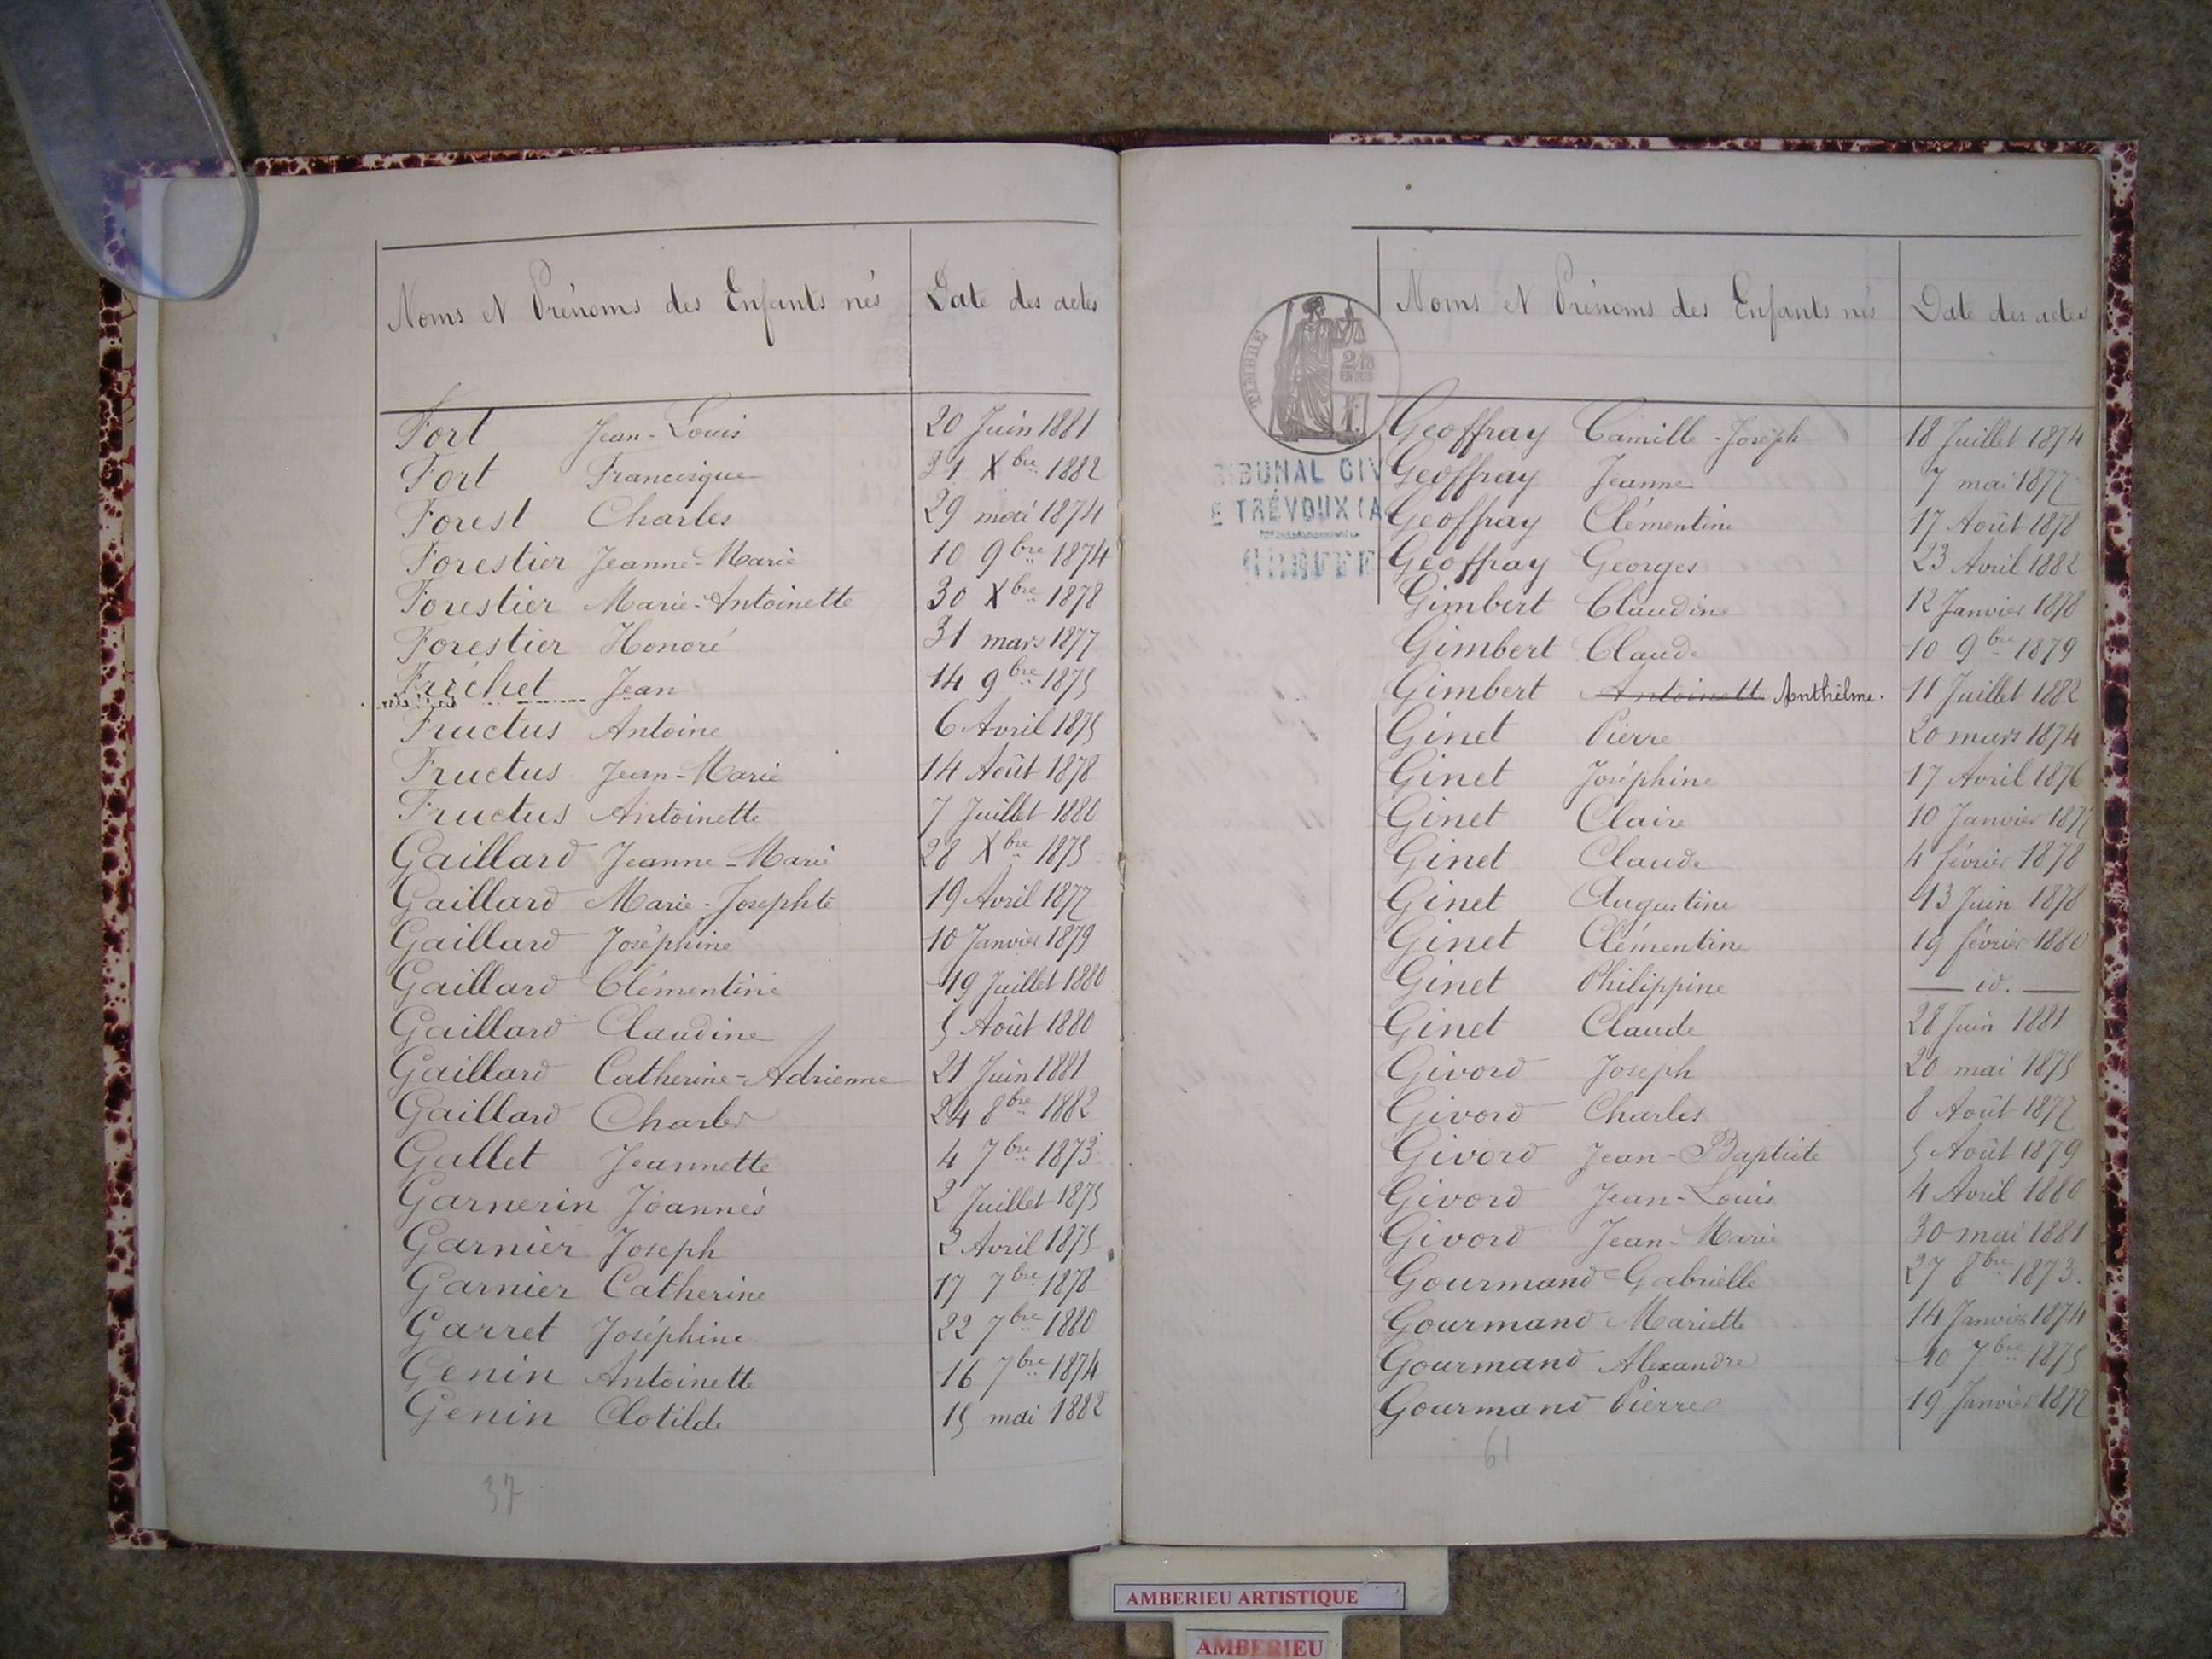 Noms et Prénoms des Enfants nés Date des actes
Fort Jean-Louis 20 Juin 1881
Fort Francisque 31 Xbre 1882
Forest Charles 29 mai 1874
Forestier Jeanne-Marie 10 9bre 1874
Forestier Marie-Antoinette 30 Xbre 1878
Forestier Honoré 31 mars 1877
Fréchet Jean 14 9bre 1875
Fructus Antoine 6 Avril 1875
Fructus Jean-Marie 14 Août 1878
Fructus Antoinette 7 Juillet
Gaillard Jeanne-Marie 28 Xbre 1875
Gaillard Marie-Josephte 19 Avril 1877
Gaillard Joséphine 10 Janvier 1879
Gaillard Clémentine 19 Juillet 1880
Gaillard Claudine 5 Août 1880
Gaillard Catherine-Adrienne 21 Juin 1881
Gaillard Charles 24 8bre 1882
Gallet Jeannette 4 7bre 1873
Garnerin Joannès 2 Juillet 1875
Garnier Joseph 2 Avril 1875
Garnier Catherine 17 7bre 1878
Garret Joséphine 22 7bre 1880
Genin Antoinette 16 7bre 1874
Genin Clotilde 15 mai 1882
37
Noms et Prénoms des Enfants nés Date des actes
TIMBRE
TRIBUNAL CIV
E TRÉVOUX (A
GREFFE
Geoffray Camille-Joseph 18 Juillet 1874
Geoffray Jeanne 7 mai 1877
Geoffray Clémentine 17 Août 1878
Geoffray Georges 23 Avril 1882
Gimbert Claudine 12 Janvier 1878
Gimbert Claude 10 9bre 1879
Gimbert Antoinette Anthelme. 11 Juillet 1882
Ginet Pierre 20 mars 1874
Ginet Joséphine 17 Avril 1876
Ginet Claire 10 Janvier 1877
Ginet Claude 4 février 1878
Ginet Augustine 13 Juin 1878
Ginet Clémentine 19 février 1880
Ginet Philippine — id. —
Ginet Claude 28 Juin 1881
Givord Joseph 20 mai 1875
Givord Charles 8 Août 1877
Givord Jean-Baptiste 5 Août 1879
Givord Jean-Louis 4 Avril 1880
Givord Jean-Marie 30 mai 1881
Gourmand Gabrielle 27 8bre 1873.
Gourmand Mariette 14 Janvier 1874
Gourmand Alexandre 10 7bre 1875
Gourmand Pierre 19 Janvier 1877
61
AMBERIEU ARTISTIQUE
AMBERIEU